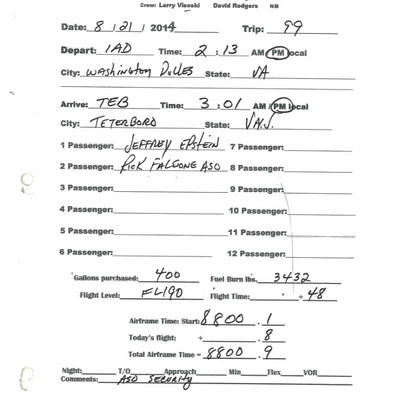 Crew: Larry Visoski David Rodgers NM
Date: 8/21/2014 Trip: 99
Depart: IAD Time: 2:13 AM PM local
City: Washington Dulles State: VA
Arrive: TEB Time: 3:01 AM/PM local
City: TETERBORO State:
1 Passenger: JEFFREY EPSTEIN 7 Passenger:
2 Passenger: RICK FALCONE ASO 8 Passenger:
3 Passenger: 9 Passenger:
4 Passenger: 10 Passenger:
5 Passenger: 11 Passenger:
6 Passenger: 12 Passenger:
Gallons purchased: 400 Fuel Burn lbs. 3432
Flight Level: FL190 Flight Time: + 48
Airframe Time: Start: 8800.1
Today's flight: + .8
Total Airframe Time = 8800.9
Night: T/O Approach Min Flex VOR
Comments: ASO SECURITY